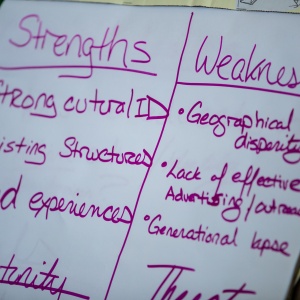 Strengths
Strong cutural ID
isting Structures
d experiences
tunity
Weaknes
• Geographical
disparity
• Lack of effective
Advertising/outreac
• Generational lapse
Threat